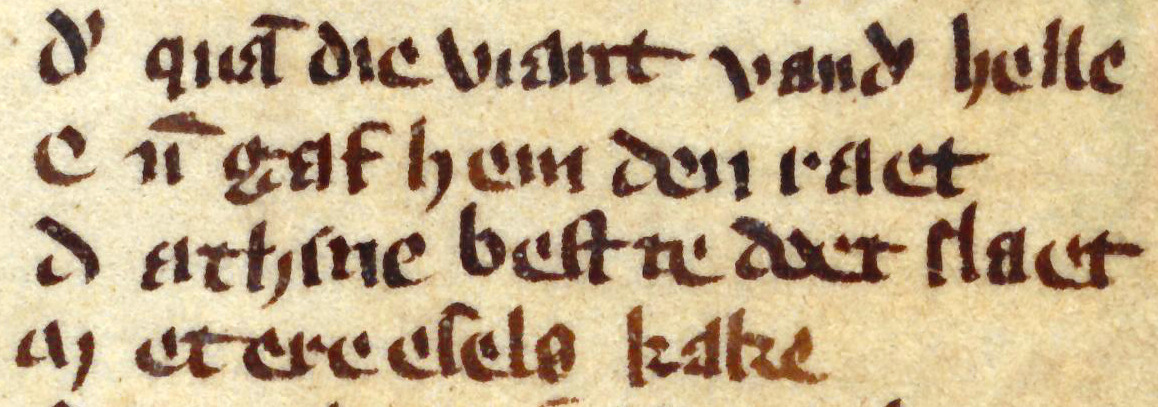 d' quā die viant vand' helle
E n̄ gaf hem den raet
d at hine beste doet slaet
m et ere esels kake